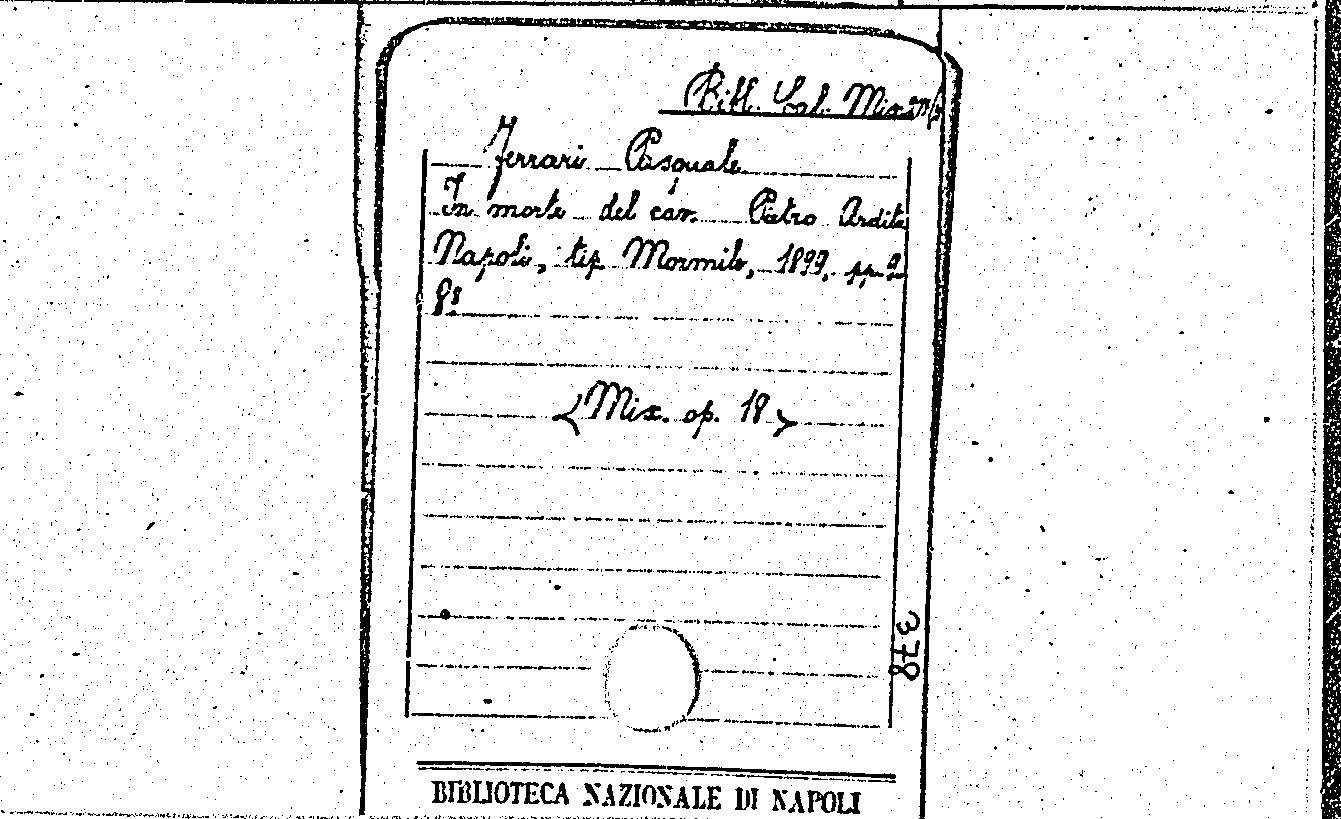 Bibl. Cal. Misc.
Ferrari Pasquale
In morte del cav. Pietro Ardito
Napoli, tip. Mormile, 1899, pp.
8º
<Mix. op. 18>
378
BIBLIOTECA NAZIONALE DI NAPOLI